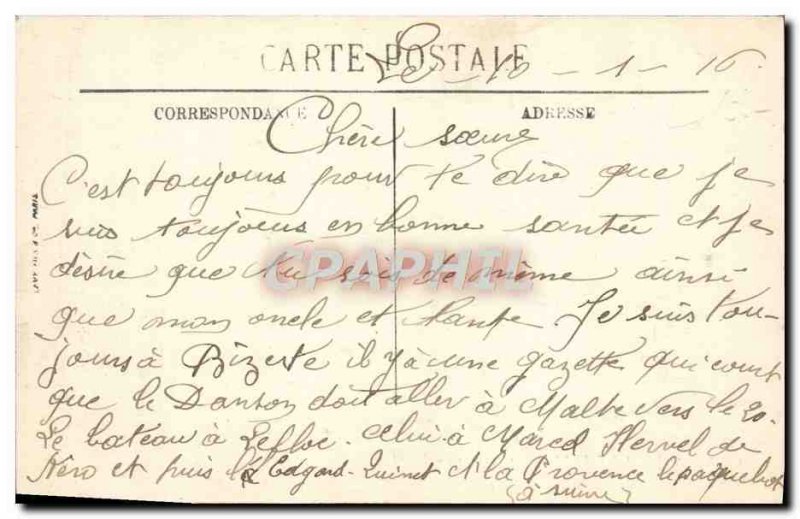 CARTE POSTALE
Le 10-1-16
CORRESPONDANCE
ADRESSE
Chère sœure
C'est toujours pour te dire que je
suis toujours en bonne santée et je
désire que tu sois de même ainsi
que mon oncle et tante Je suis tou-
jours à Bizerte il y à une gazette qui court
que le Danton doit aller à Malte vers le 20.
Le bateau à Lefloc. celui à Marcel Hervel de
Kéro et puis l'Edgard-Quinet et la Provence le paquebot
(à suivre)
CPAPHIL